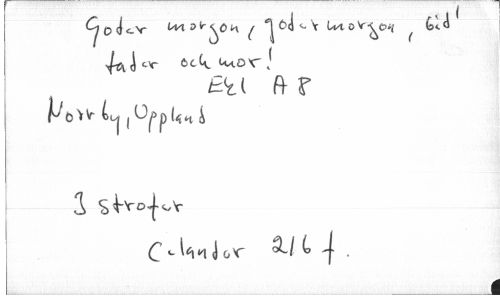 Goder morgon, goder morgon, bid'
fader och mor!
E41 A 8
Norrby, Uppland
3 strofer
Celander 216 f.